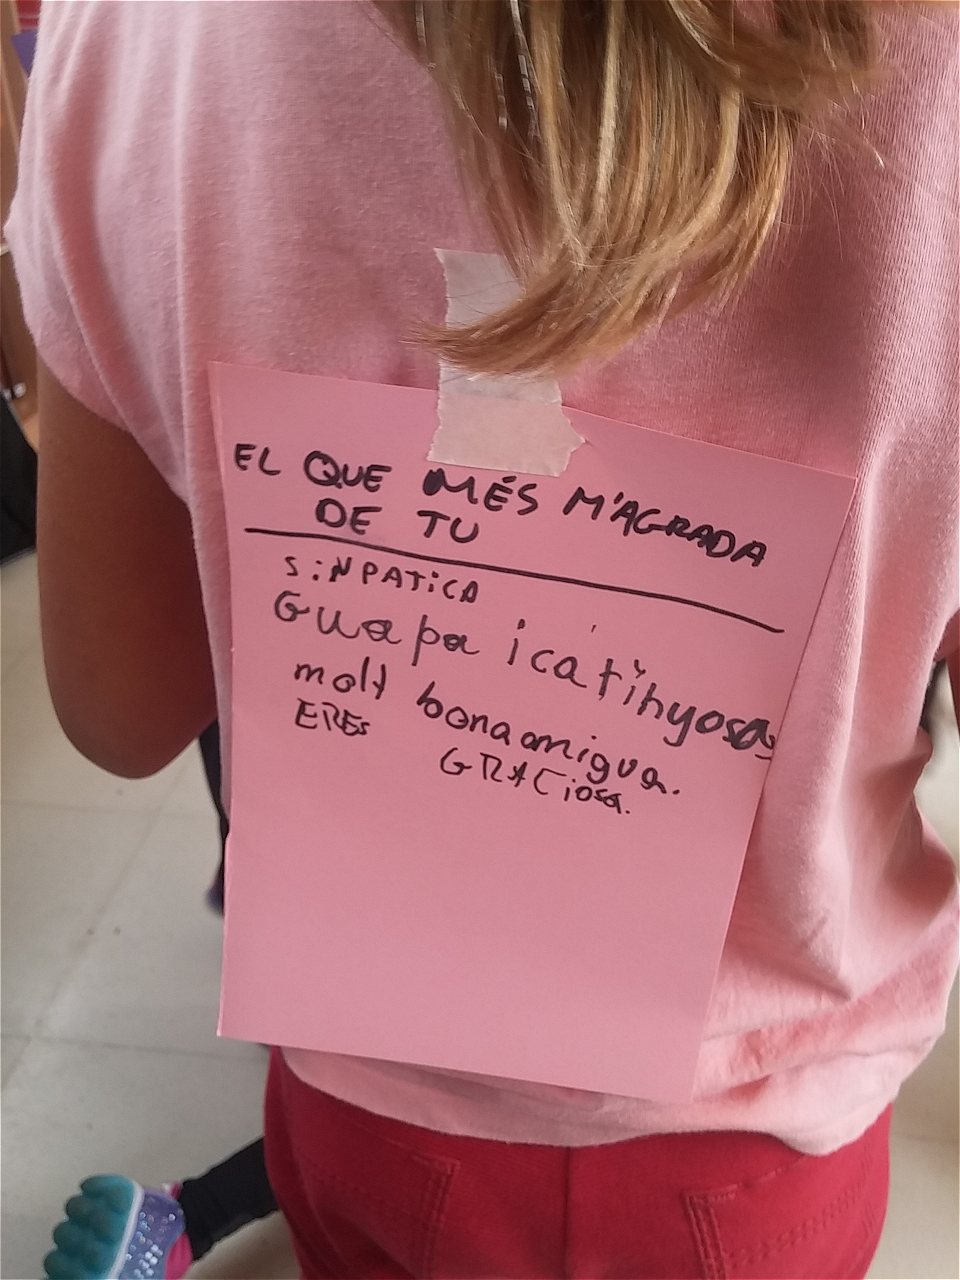 EL QUE MÉS M'AGRADA
DE TU
SiNPATiCA
Guapa i catinyosa
molt bona amigua.
EREs GRACiosa.